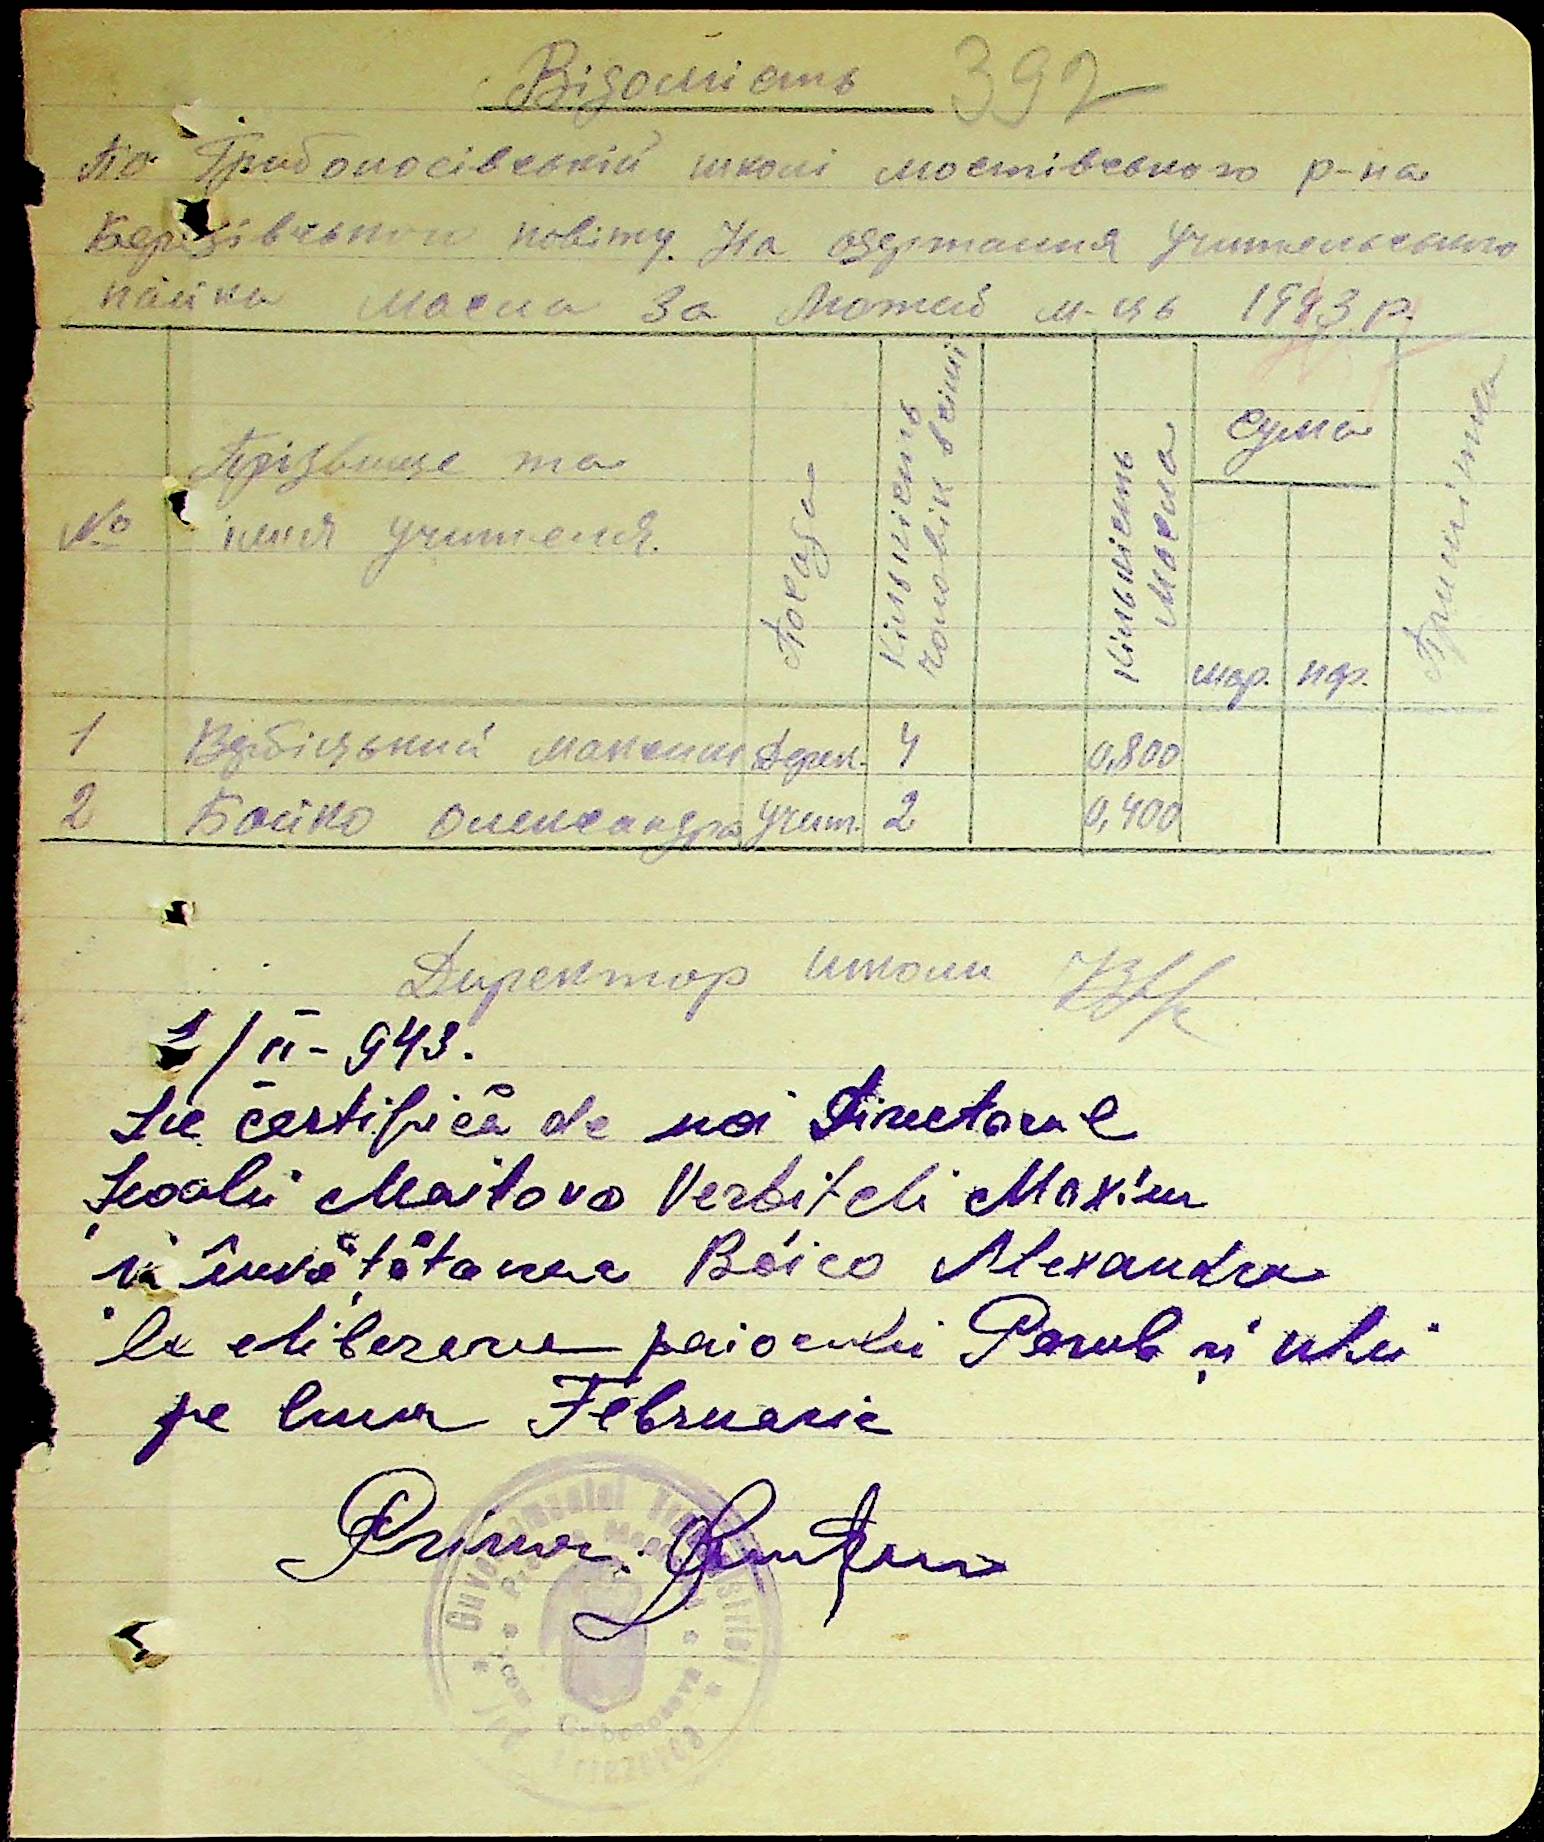 Відомість 392
По Грибоносівській школі мостівського р-на
Березівського повіту. На одержання учительського
пайка масла за Лютий м-ць 1943 р.
№
Прізвище та
імня учителя.
Посада
Кількість
чоловік в сімї
Кількість
Масла
Сума
мар. пф.
Примітка
1 Вербіцький максим Дерек. 4 0,800
2 Бойко олександра учит. 2 0,400
Директор школи
1/II-943.
Se certifică de noi Directorul
Școalei Maitova Verbitchi Maxim
și învățătoarea Boico Alexandra
la eliberarea paiocului și ului
pe luna Februarie
Primar.
Guvernamentul Transnistriei